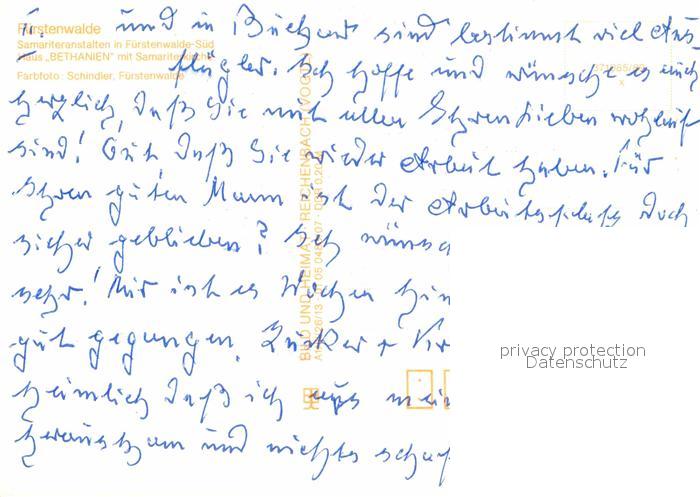 Fürstenwalde
Samariteranstalten in Fürstenwalde-Süd
Haus „BETHANIEN" mit Samariterkirche
Farbfoto: Schindler, Fürstenwalde
und in Buckow sind bestimmt viel Aus-
flügler. Ich hoffe und wünsche es auch
herzlich, daß Sie mit allen Ihren Lieben wohlauf
sind! Gut daß Sie wieder Arbeit haben. Für
Ihren guten Mann ist der Arbeitsplatz doch
sicher geblieben? Ich wünsc
sehr! Mir ist es Wochen hin
gut gegangen. Zucker +
heimlich daß ich aus mein
herauskam und nichts schaf
BILD UND HEIMAT REICHENBACH (VOGTL)
privacy protection
Datenschutz